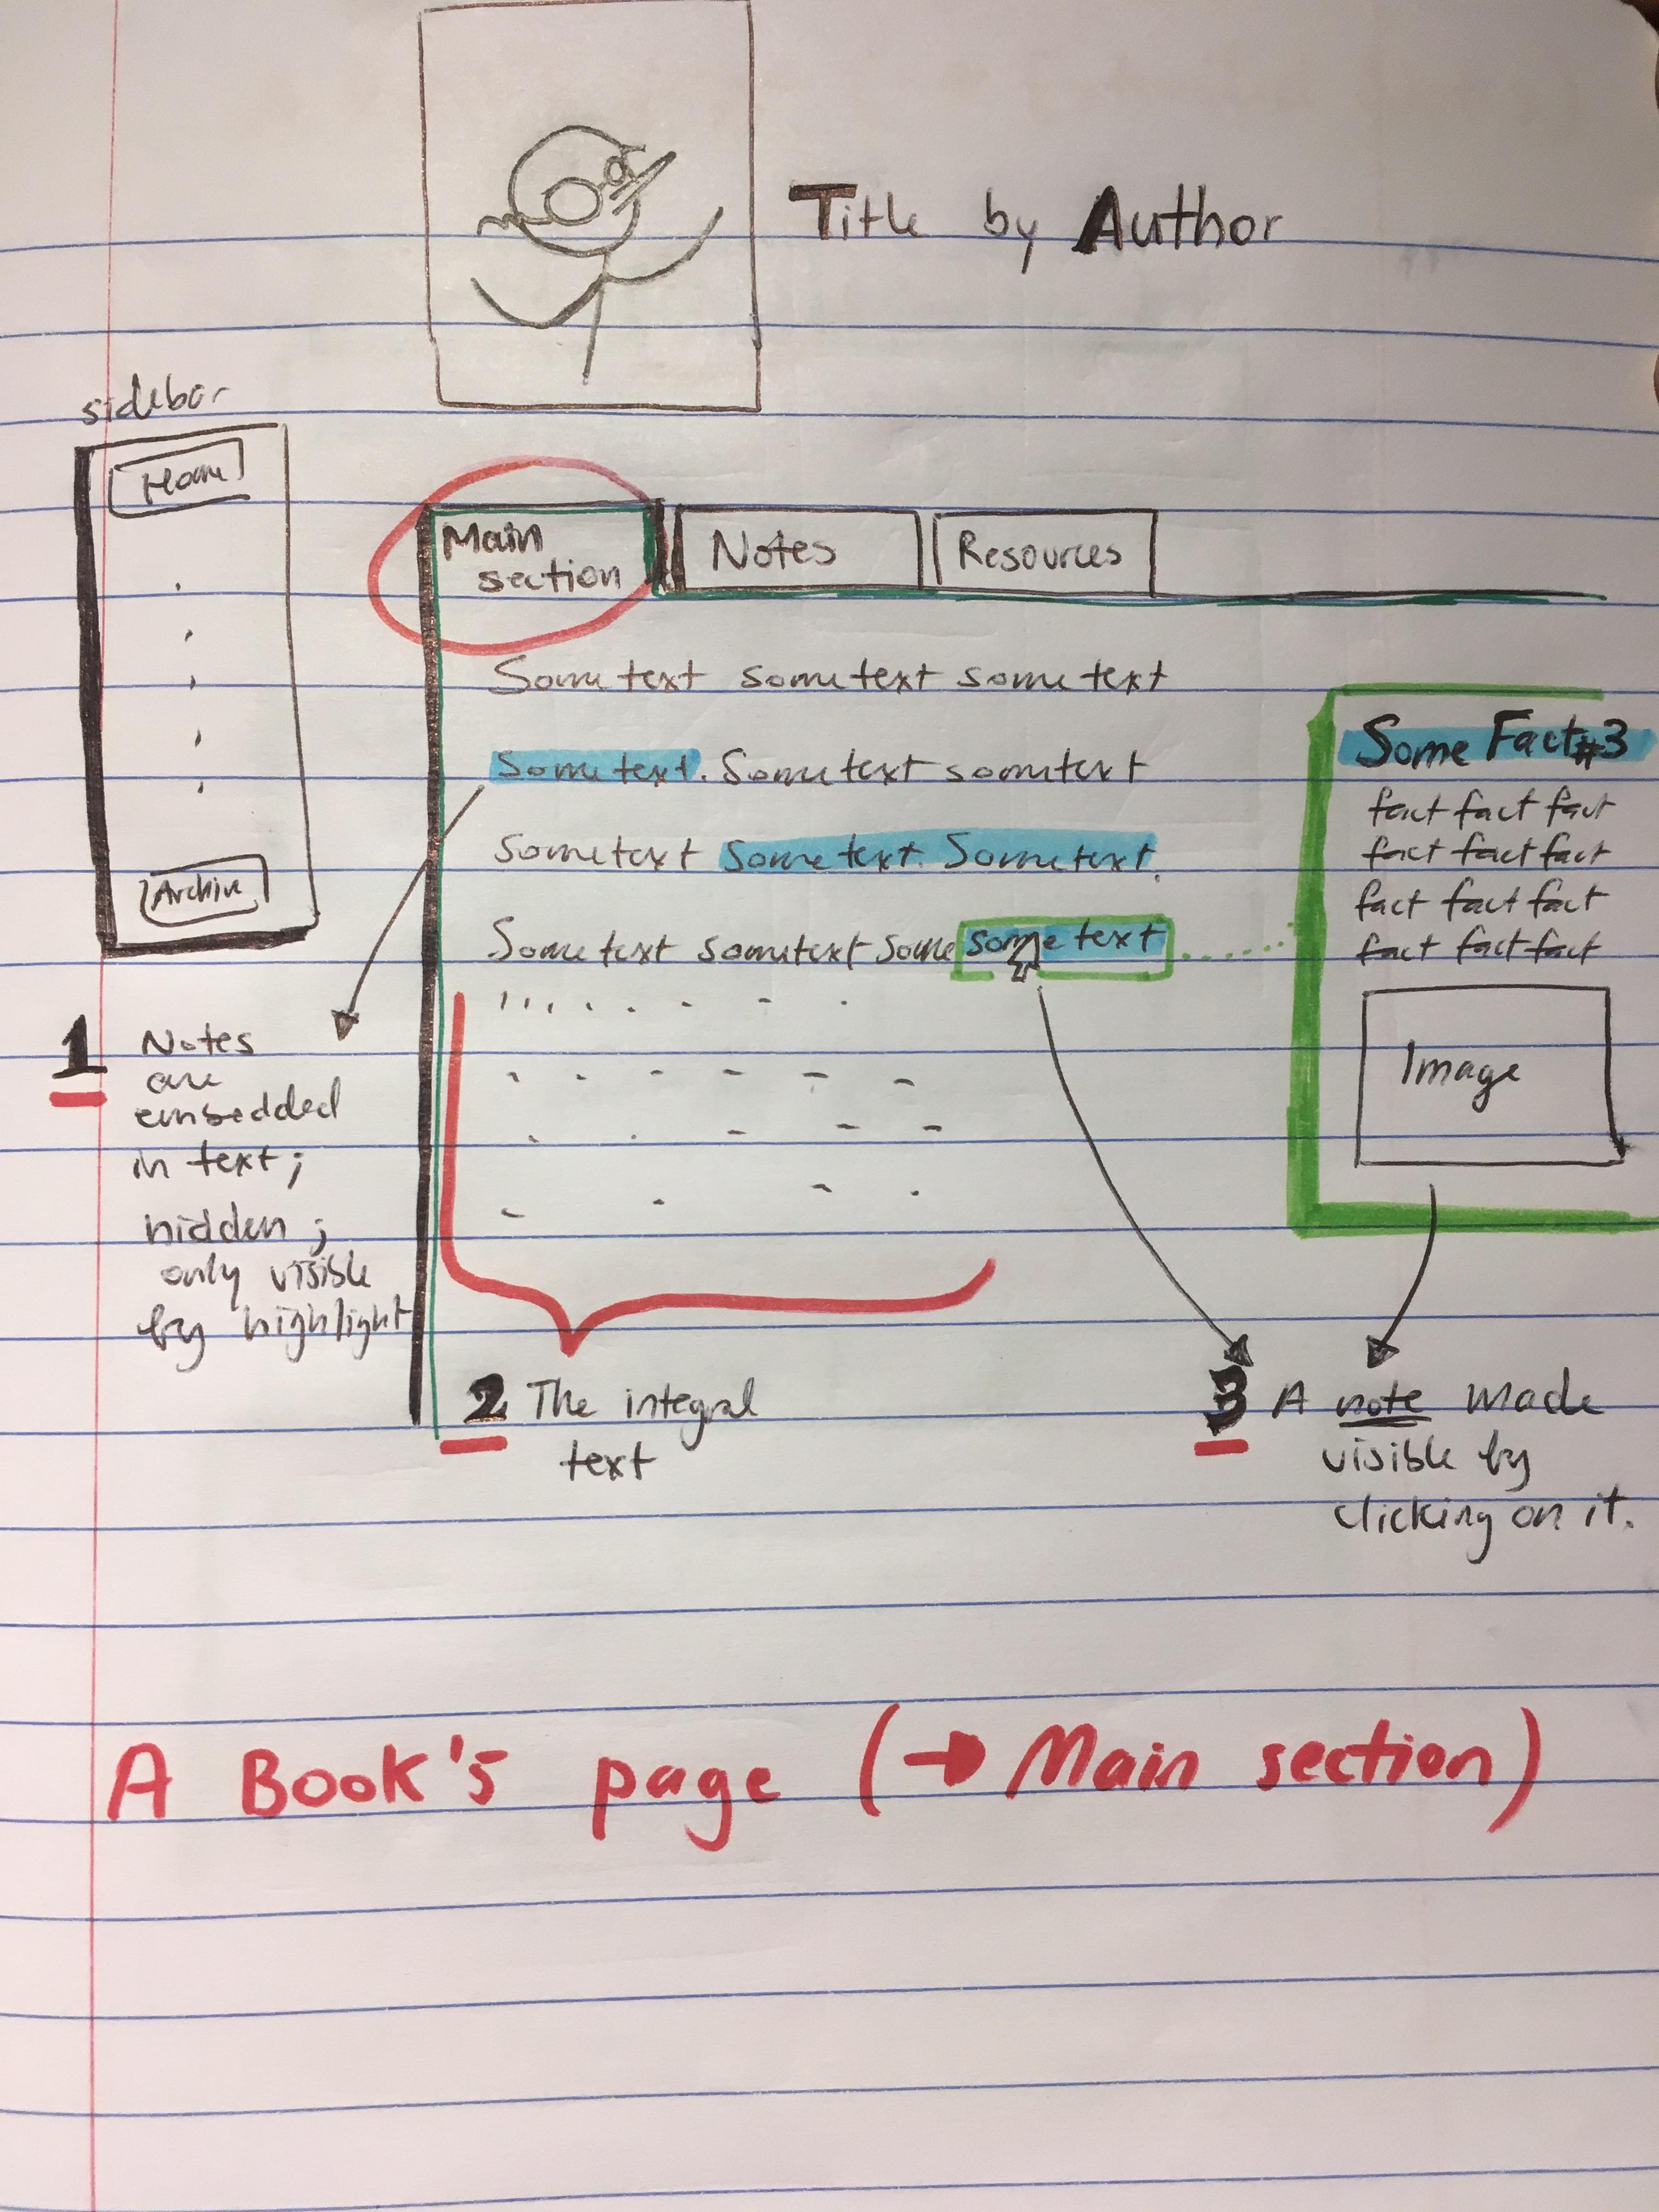 Title by Author
sidebar
Home
Main
section
Notes
Resources
Some text some text some text
Some text. Some text some text
Some text some text. Some text.
Some text some text some some text
Archive
Some Fact #3
fact fact fact
fact fact fact
fact fact fact
fact fact fact
Image
1 Notes
are
embedded
in text;
hidden;
only visible
by highlight
2 The integral
text
3 A note made
visible by
clicking on it.
A Book's page (→ Main section)